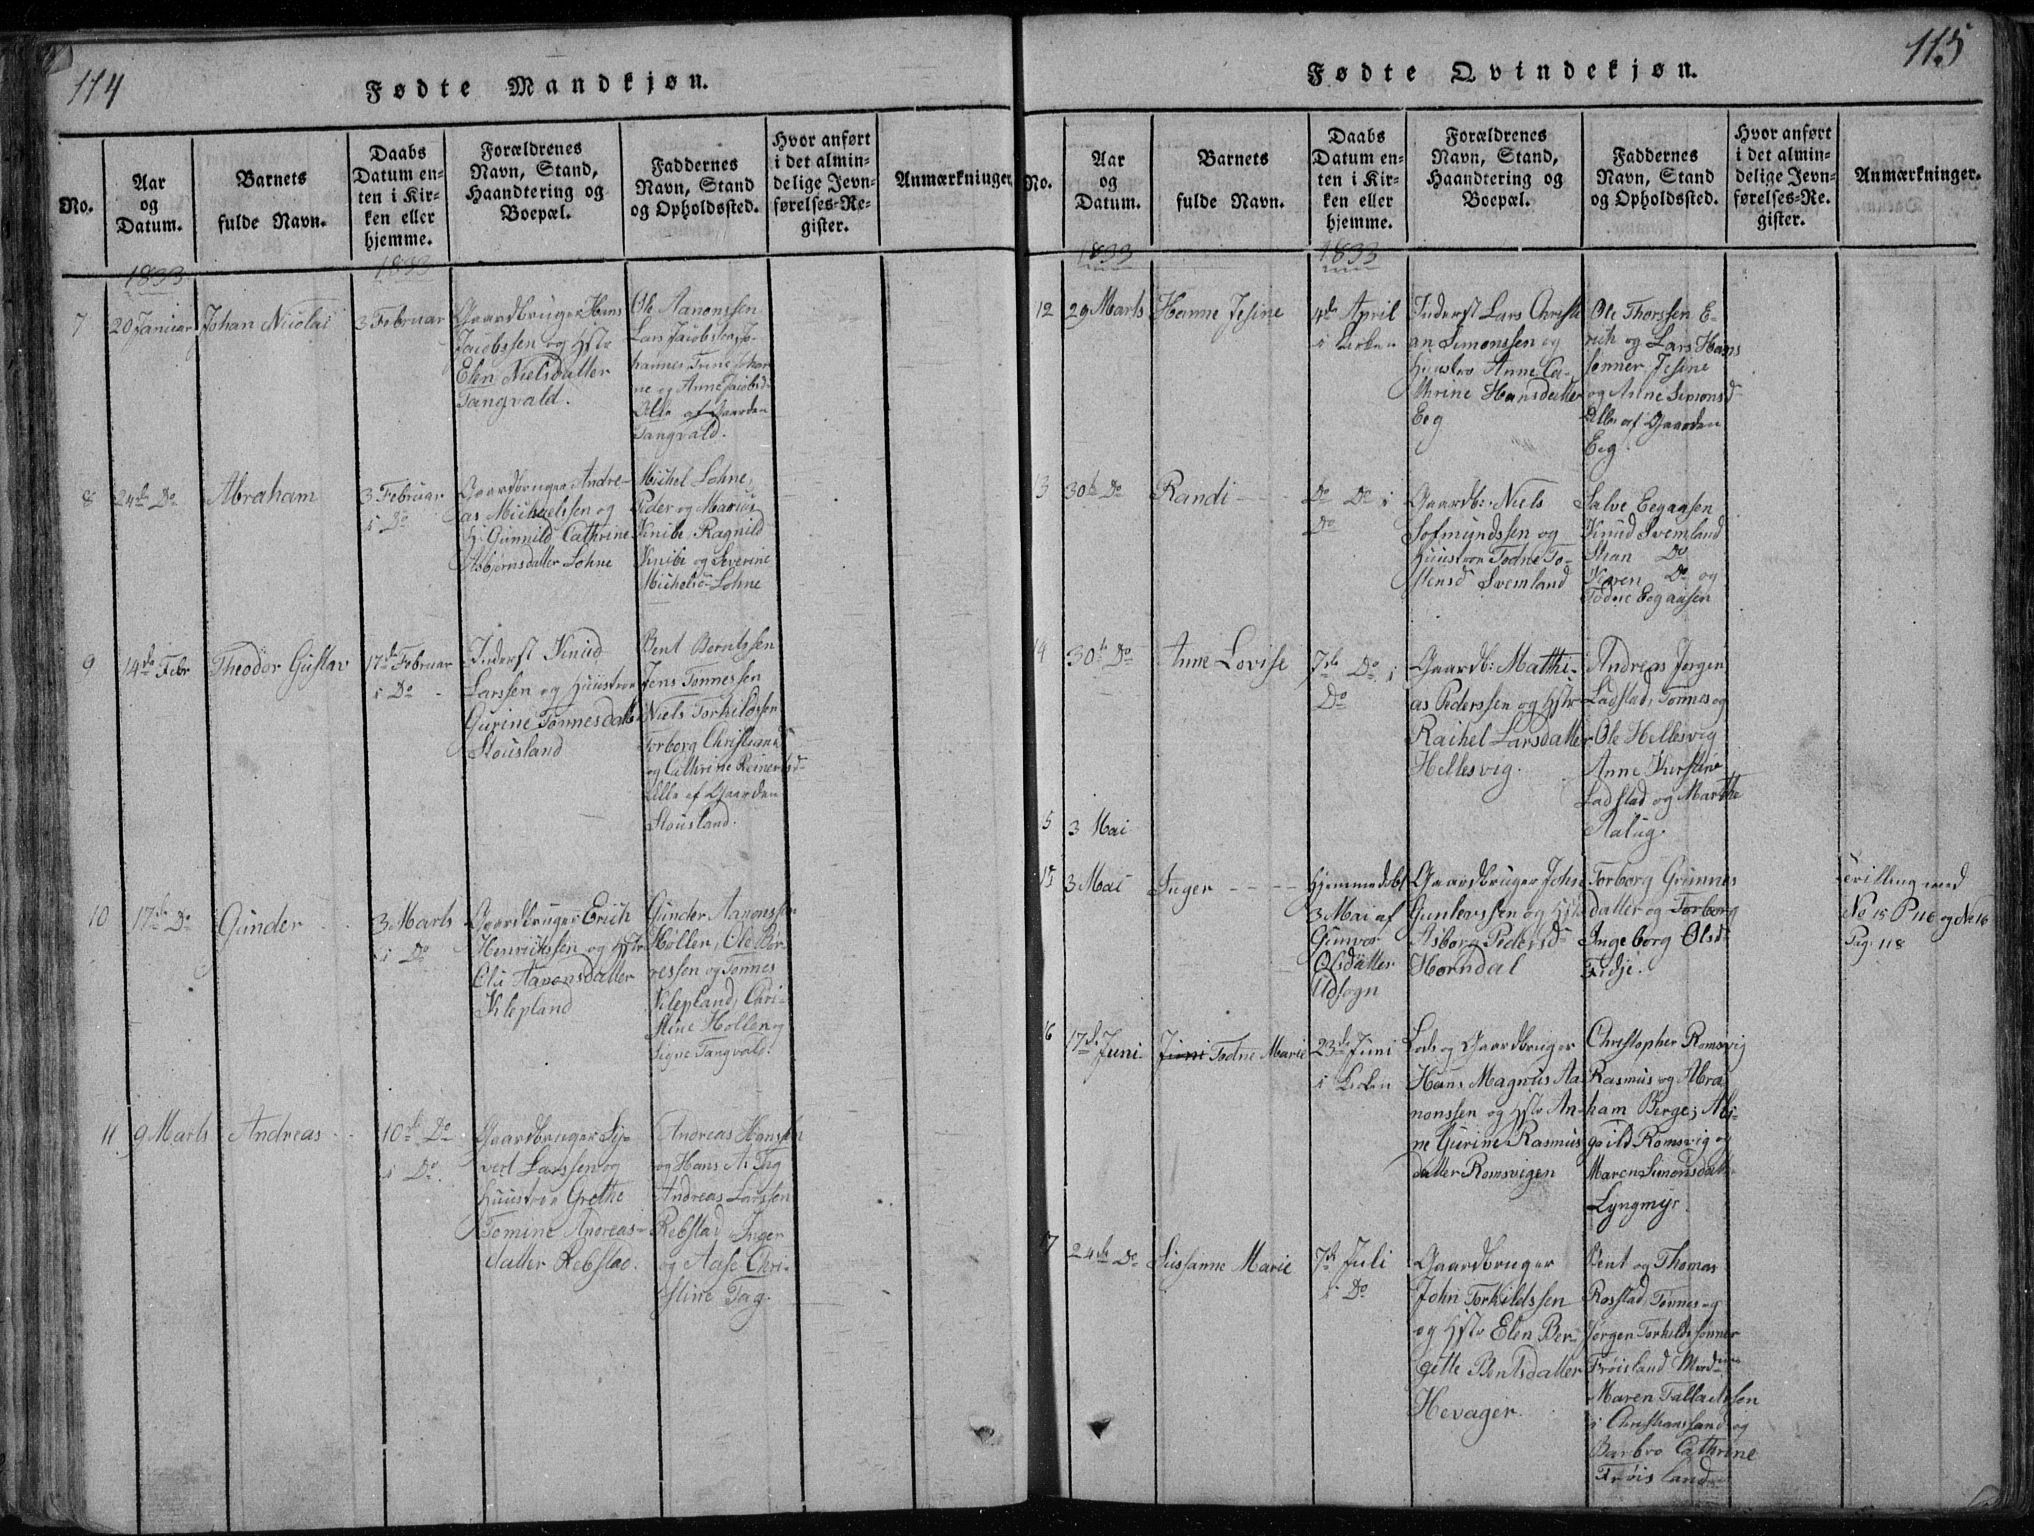 114
Fødte Mandkjøn.
No.
Aar
og
Datum.
Barnets
fulde Navn.
Daabs
Datum en-
ten i Kir-
ken eller
hjemme.
Forældrenes
Navn, Stand,
Haandtering og
Boepæl.
Faddernes
Navn, Stand
og Opholdssted.
Hvor anført
i det almin-
delige Jevn-
førelses-Re-
gister.
Anmærkninger.
1833
1833
7
20 Januar
Johan Nicolai
3 Februar
Gaardbruger Hans
Jacobssen og Hstr
Elen Nielsdatter
Tangvald.
Ole Aanonssen
Lars Jacobssen, Jo-
hannes, Trine, Johan-
ne og Anne Jacobsd
Alle af Gaarden
Tangvald.
8
24de Do
Abraham
3 Februar
i Do
Gaardbruger Andre-
as Michaelssen og
H. Gunnild Cathrine
Asbjørnsdatter Lohne
Michel Lohne,
Peder og Marius
Knibe, Ragnild
Knibe og Severine
Michelsd Lohne
9
14de Febr
Theodor Gustav
17de Februar
i Do
Inderst Knud
Larssen og Huustroe
Gurine Tønnesdatt
Stousland
Bent Berntssen
Jens Tønnessen
Niels Torkildssen
Torborg Christiansd
og Cathrine Reinertsd
Alle af Gaarden
Stousland.
10
17de Do
Gunder
3 Marts
i Do
Gaardbruger Erich
Henrikssen og Hstr
Oli Aanonsdatter
Klepland
Gunder Aanonssen
Høllen, Ole Bør-
ressen og Tønnes
Klepland, Chri-
stine Hollen og
Signe Tangvald.
11
9 Marts
Andreas
10de Do
i Do.
Gaardbruger Sy-
vert Larssen og
Huustroe Grethe
Tomine Andreas-
datter Rebstad.
Andreas Hanssen
og Hans A. Tag
Andreas Larssen
Rebstad, Inger
og Aase Chri-
stine Tag.
115
Fødte Qvindekjøn.
No.
Aar
og
Datum.
Barnets
fulde Navn.
Daabs
Datum en-
ten i Kir-
ken eller
hjemme.
Forældrenes
Navn, Stand,
Haandtering og
Boepæl.
Faddernes
Navn, Stand
og Opholdssted.
Hvor anført
i det almin-
delige Jevn-
førelses-Re-
gister.
Anmærkninger.
1833
1833
12
29 Marts
Hanne Jesine
4de April
i Kirken
Inderst Lars Christi
an Simonssen og
Huustro Anne Ca-
thrine Hansdatter
Eeg
Ole Thorssen E-
rich og Lars Hans
sønner, Jesine
og Anne Simonsd
Alle af Gaarden
Eeg.
13
30te Do
Randi
Do Do i
Do
Gaardb: Niels
Sofmundssen og
Huustroe Todne To-
stensd Svemland
Salve Eegaasen
Knud Svemland
Stian Do
Karen Do og
Todne Eegaasen
14
30te Do
Anne Lovise
7de Do i
Do
Gaardb: Matthi-
as Pederssen og Hstr
Rachel Larsdatter
Hellesvig.
Andreas Jørgen
Ladstad, Tønnes og
Ole Hellesvig
Anne Kirstine
Ladstad og Marthe
Aalug.
15
3 Mai
15
3 Mai
Inger
Hjemmedøbt
3 Mai af
Gunvor
Olsdatter
Udsogn
Gaardbruger John
Gunlevssen og Hstr
Asborg Pedersd
Horndal
Torborg Grunnes
datter og Torborg
Ingeborg Olsd
Fidje.
Trilling med
No 15 P 116 og No 16
Pag: 118
16
17de Juni
Juni Todne Marie
23de Juni
i Kirken
Lods og Gaardbruger
Hans Magnus Aa
nonssen og Hstr An-
ne Gurine Rasmus
datter Romsvigen
Christopher Romsvig
Rasmus og Abra
ham Berge; Abi-
gaild Romsvig og
Maren Simonsdatt
Lyngmyr.
17
24de Do
Sussanne Marie
7de Juli
i Do
Gaardbruger
John Torkildssen
og Hstr Elen Ber-
gitte Bentsdatter
Hevager.
Bent og Thomas
Rosstad, Tønnes og
Jørgen Torkilds sønner
Frøisland Mad
Maren Tallaksen
i Christianssand og
Barbro Cathrine
Frøisland